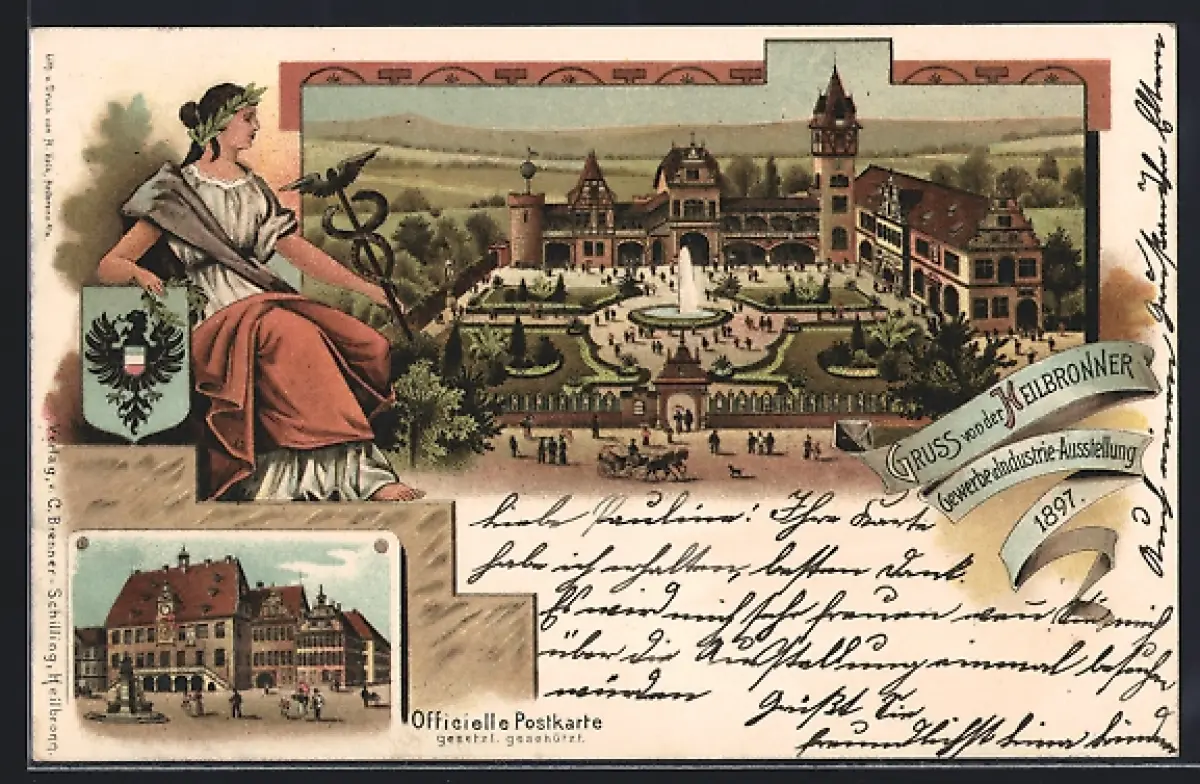 GRUSS von der HEILBRONNER
Gewerbe u. Industrie-Ausstellung
1897.
Liebe Pauline! Ihre Karte
habe ich erhalten, besten Dank.
Es wird mich sehr freuen wen Sie mich
über die Ausstellung einmal besuchen
würden Grüßt Sie
freundlichst
Auch einen Gruß an Ihre Eltern
Officielle Postkarte
gesetzl. geschützt.
Verlag v. C. Brenner-Schilling, Heilbronn.
Lith. u. Druck von